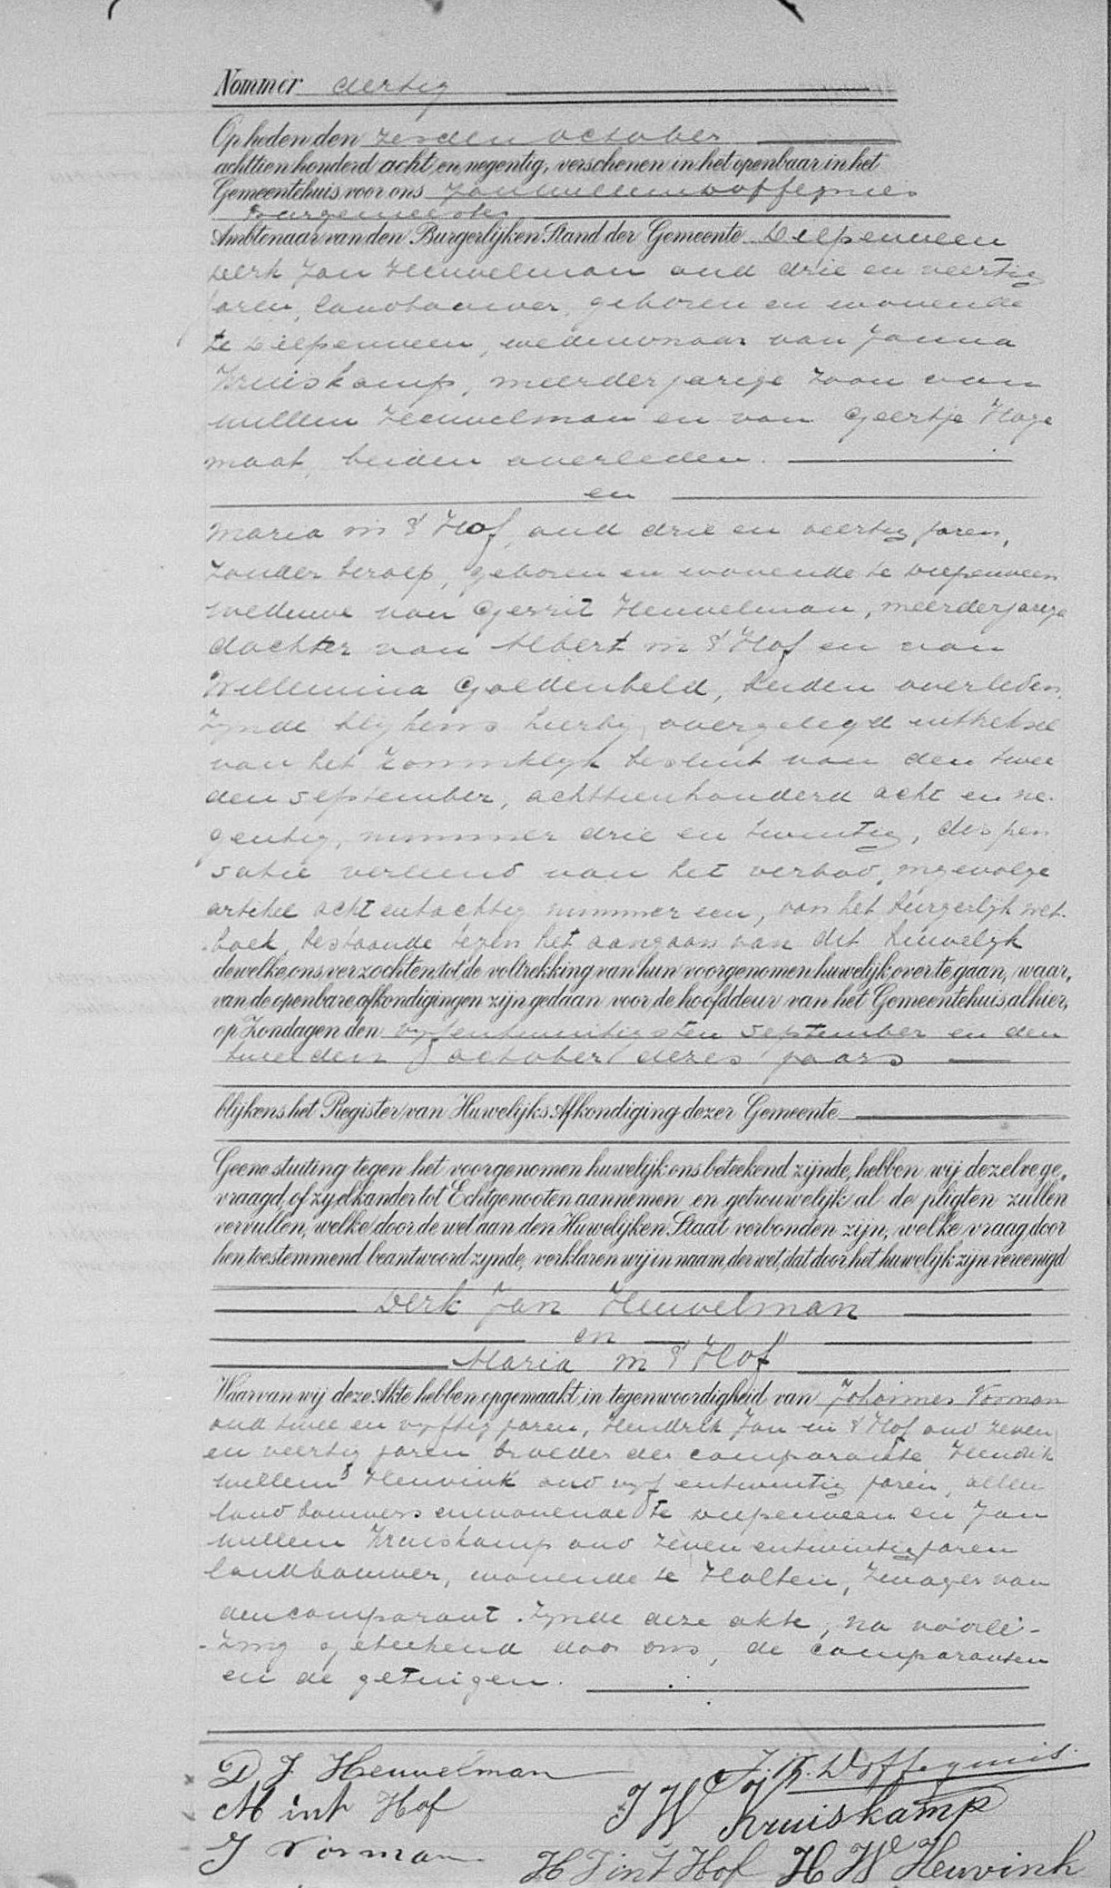 Nommer dertig
Op heden den zesden october
achttien honderd acht en negentig, verschenen in het openbaar in het
Gemeentehuis voor ons Jan Willem Doffegnies
Burgemeester
Ambtenaar van den Burgerlijken Stand der Gemeente Diepenveen
Derk Jan Heuvelman oud drie en veertig
jaren, landbouwer, geboren en wonende
te Diepenveen, weduwnaar van Janna
Kruiskamp, meerderjarige zoon van
Willem Heuvelman en van Geertje Hage
maat, beiden overleden.
en
Maria in 't Hof, oud drie en veertig jaren,
zonder beroep, geboren en wonende te Diepenveen
weduwe van Gerrit Heuvelman, meerderjarige
dochter van Albert in 't Hof en van
Willemina Goldenbeld, beiden overleden,
zynde blykens hierby overgelegd uittreksel
van het Koninklyk besluit van den twee
den september, achttienhonderd acht en ne-
gentig, nummer drie en twintig, dispen
satie verleend van het verbod, ingevolge
artikel acht en tachtig nummer een, van het Burgerlyk wet-
boek, bestaande tegen het aangaan van dit huwelyk
dewelke ons verzochten tot de voltrekking van hun voorgenomen huwelijk over te gaan, waar-
van de openbare afkondigingen zijn gedaan voor de hoofddeur van het Gemeentehuis alhier,
op Zondagen den vyfentwintigsten September en den
tweeden october dezes jaars
blijkens het Register van Huwelijks Afkondiging dezer Gemeente
Geene stuiting tegen het voorgenomen huwelijk ons beteekend zijnde, hebben wij dezelve ge-
vraagd, of zij elkander tot Echtgenooten aannemen en getrouwelijk al de pligten zullen
vervullen, welke door de wet aan den Huwelijken Staat verbonden zijn, welke vraag door
hen toestemmend beantwoord zijnde, verklaren wij in naam der wet, dat door het huwelijk zijn vereenigd
Derk Jan Heuvelman
en
Maria in 't Hof
Waarvan wij deze Akte hebben opgemaakt in tegenwoordigheid van Johannes Vorman
oud twee en vyftig jaren, Hendrik Jan in 't Hof oud zeven
en veertig jaren broeder der comparante Hendrik
Willem Heuvink oud vyf en twintig jaren, allen
landbouwers en wonende te Diepenveen en Jan
Willem Kruiskamp oud zeven en twintig jaren
landbouwer, wonende te Holten, zwager van
den comparant. Zynde deze akte, na voorle-
zing geteekend door ons, de comparanten
en de getuigen.
D J Heuvelman
J. W. Doffegnies.
M int Hof
J W Kruiskamp
J Vorman
H J int Hof H W Heuvink